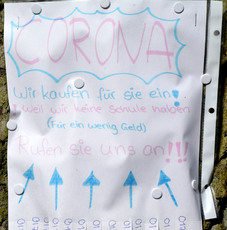 CORONA
Wir kaufen für sie ein!
Weil wir keine Schule haben
(Für ein wenig Geld)
Rufen sie uns an!!!